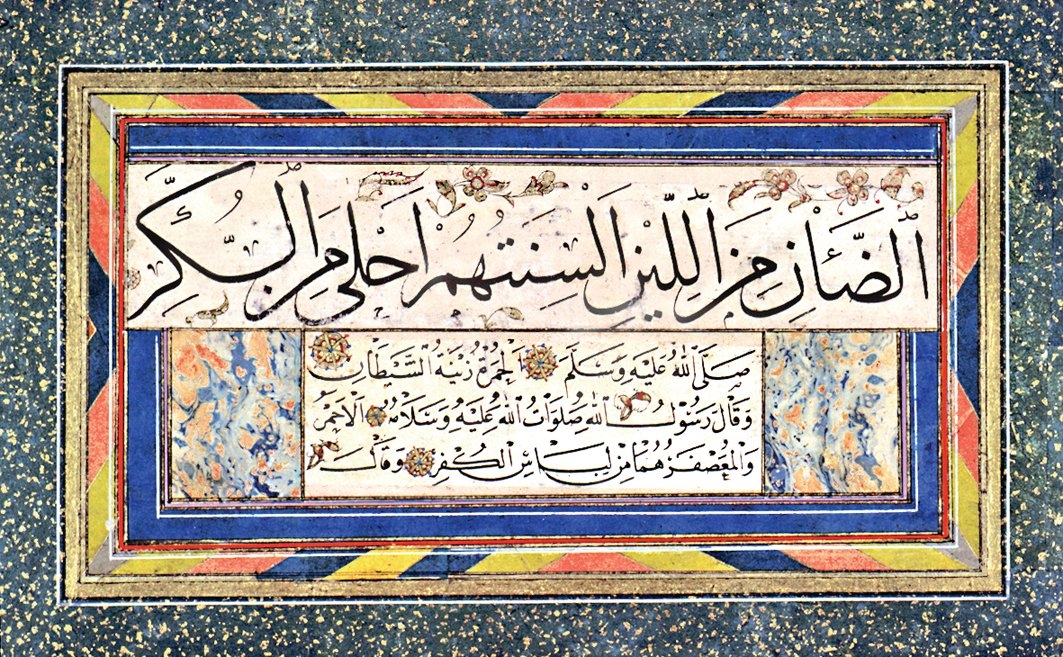 الضَّأْنِ مِنَ اللِّيْنِ اَلْسِنَتُهُمْ اَحْلٰى مِنَ السُّكَّرِ
صَلَّى اللهُ عَلَيْهِ وَسَلَّمَ اَلْحُمْرَةُ زِيْنَةُ الشَّيْطَانِ
وَقَالَ رَسُوْلُ اللهِ صَلَوَاتُ اللهِ عَلَيْهِ وَسَلَامُهُ الْاَحْمَرُ
وَالْمُعَصْفَرُ هُمَا مِنْ لِبَاسِ الْكُفْرِ وَقَالَ